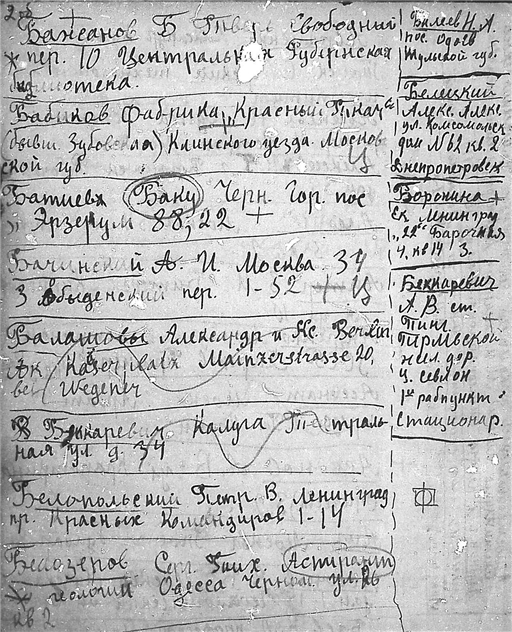 Бажанов Б Тверь Свободный
пер. 10 Центральная Губернская
библиотека.
Бабиков фабрика „Красный Ткач"
(бывш. Зубовская) Клинского уезда. Москов
ской губ. Ц
Батиевх Баку Черн. Гор. пос
Эрзерум 88, 22
Бачинский А. И. Москва 34
3 Обыденский пер. 1-52 Ц
Балашовы Александр и Berlin,
Mainzerstrasse 20,
bei Wegener
Бекнаревич Калуга Театраль
ная ул. д. 34
Белопольский Петр. В. Ленинград
пр. Красных Командиров 1-14
Белозеров Серг. Тих. Астрахан
геологии Одесса Черном. ул.
кв 2
Билеев И. А.
пос. Одоев
Тульской губ.
Белецкий
Алекс. Алекс.
ул. Комсомольск
дом № 62 кв. 2
Днепропетровск
Воронина
Ленингра
„22" Барочная
4, кв 14 3.
Бекнаревич
А. В. ст.
Пермьской
жел. дор.
1й рабпункт
Стационар.